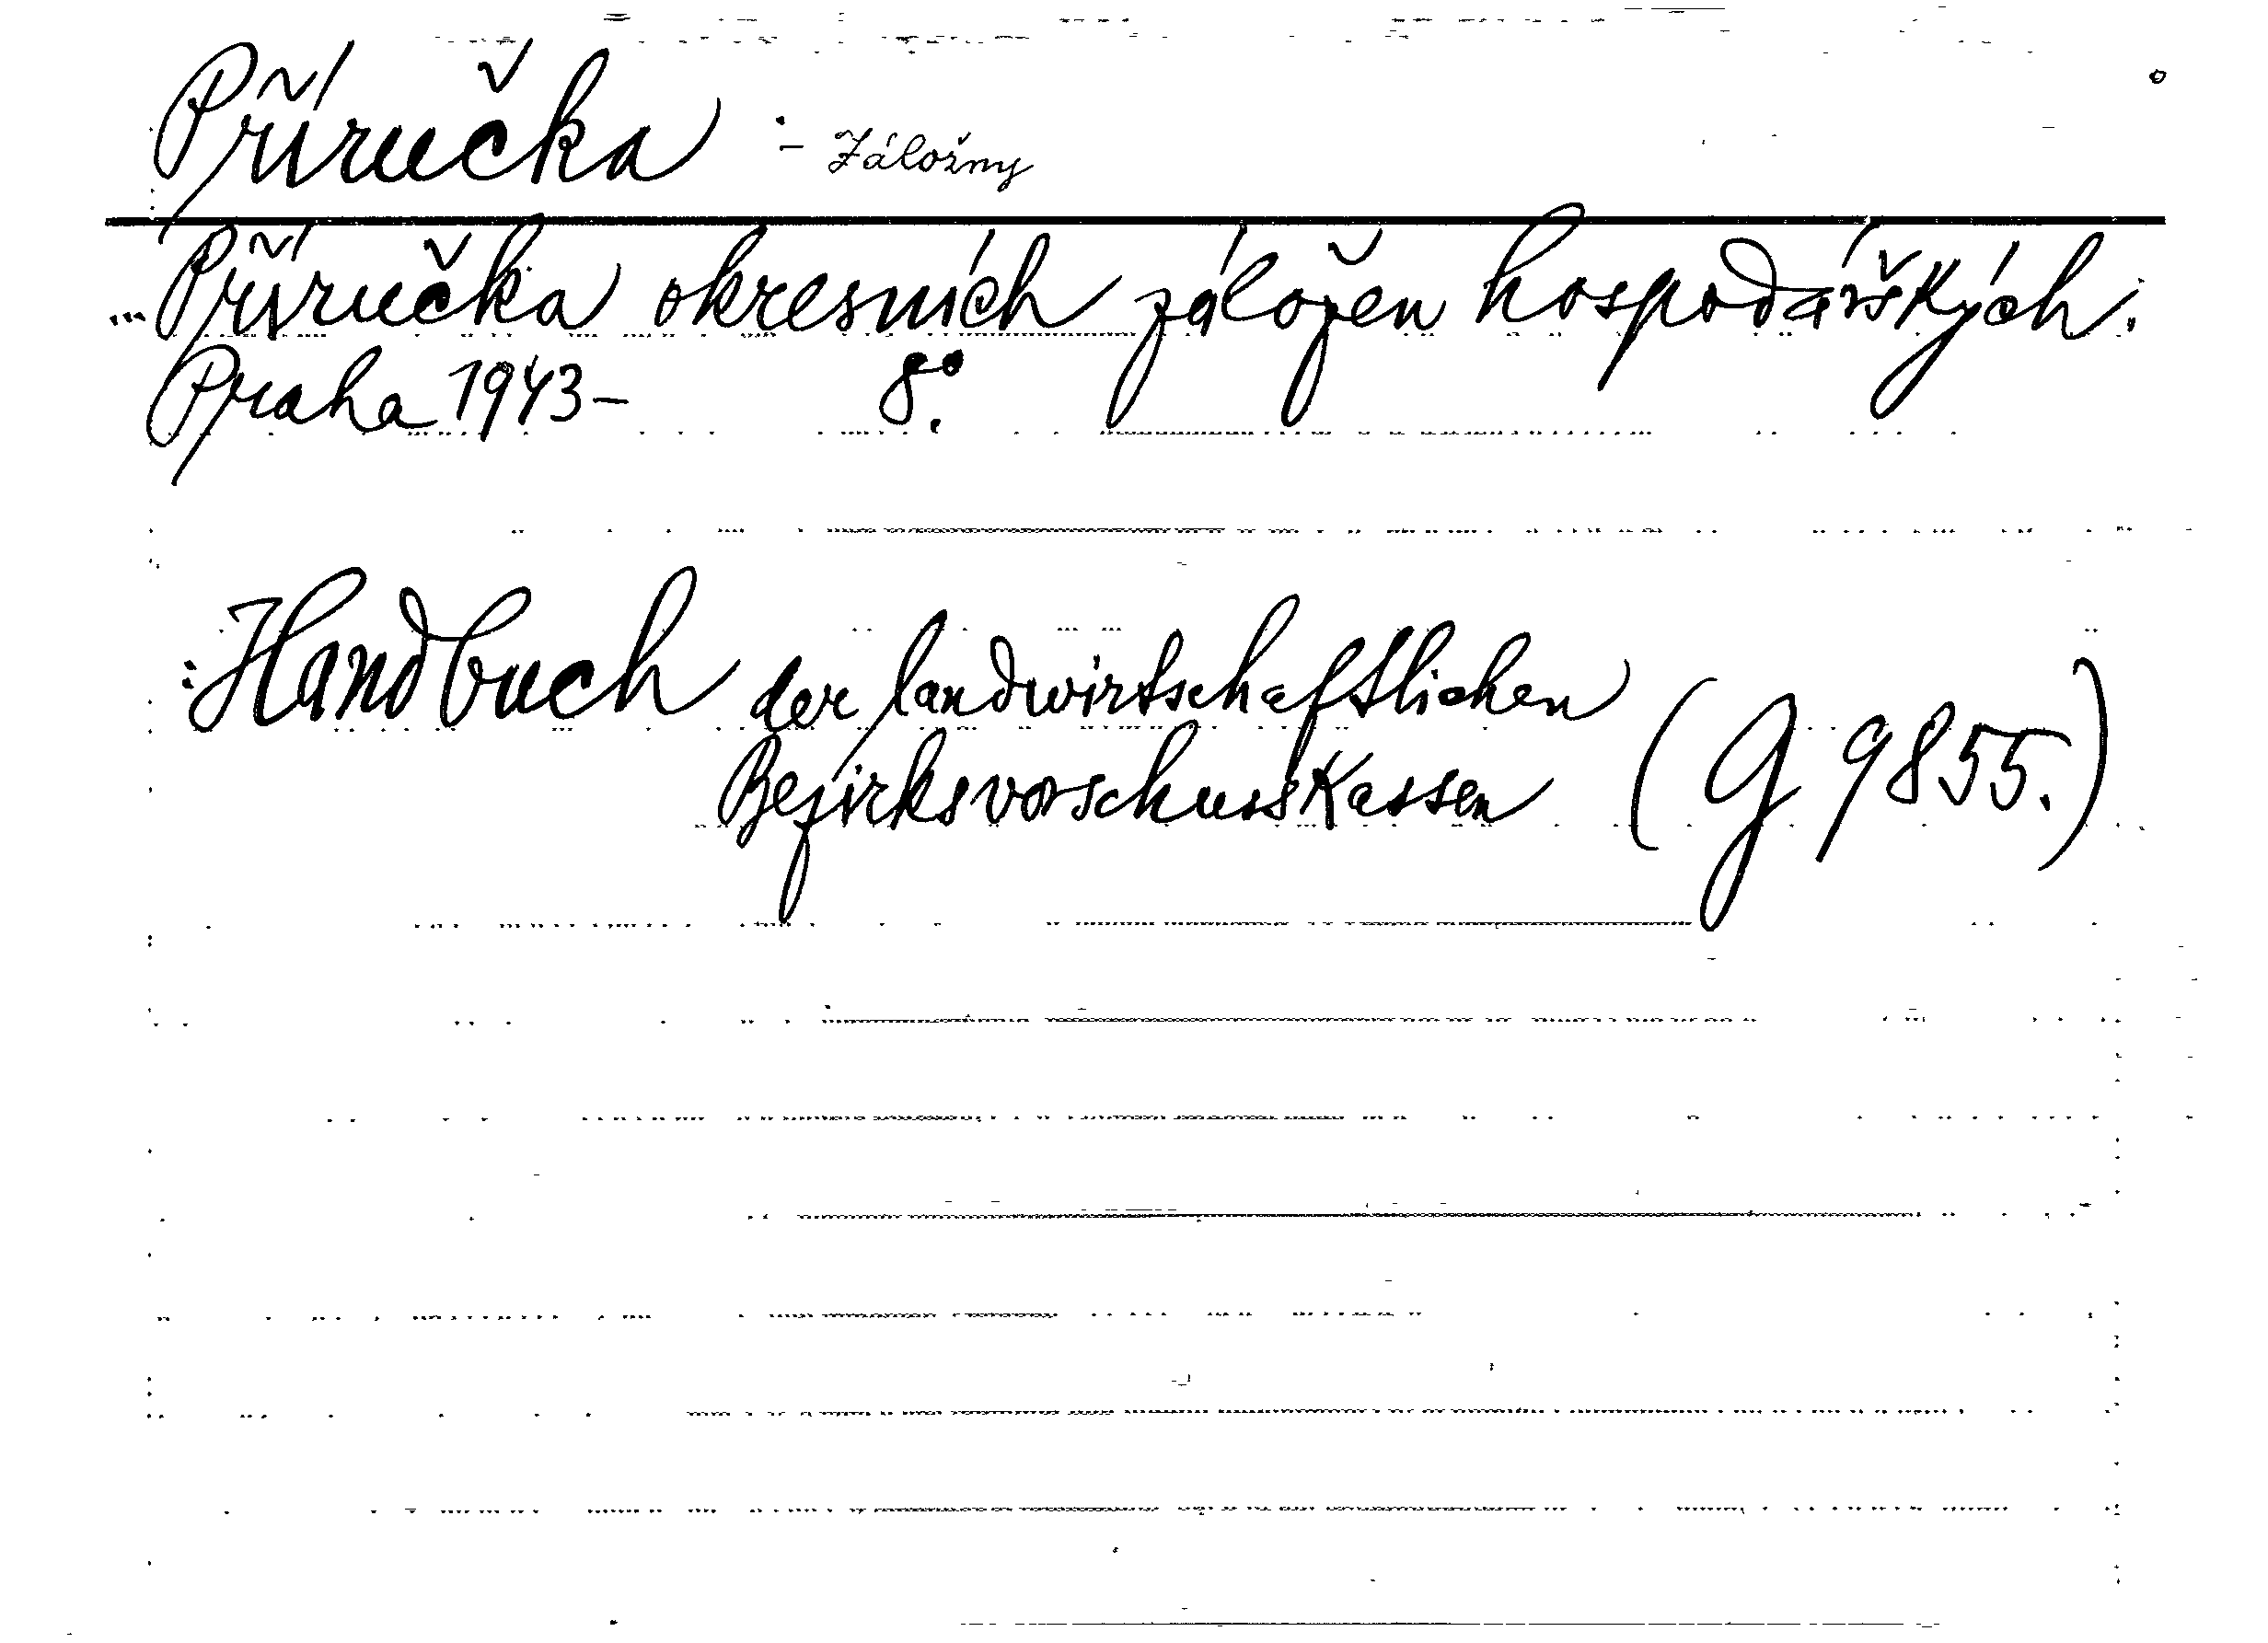 Příručka :- Záložny
Příručka okresních záložen hospodářských.
Praha 1943- 8°.
:Handbuch der landwirtschaftlichen
Bezirksvorschusskassen (G 9855.)